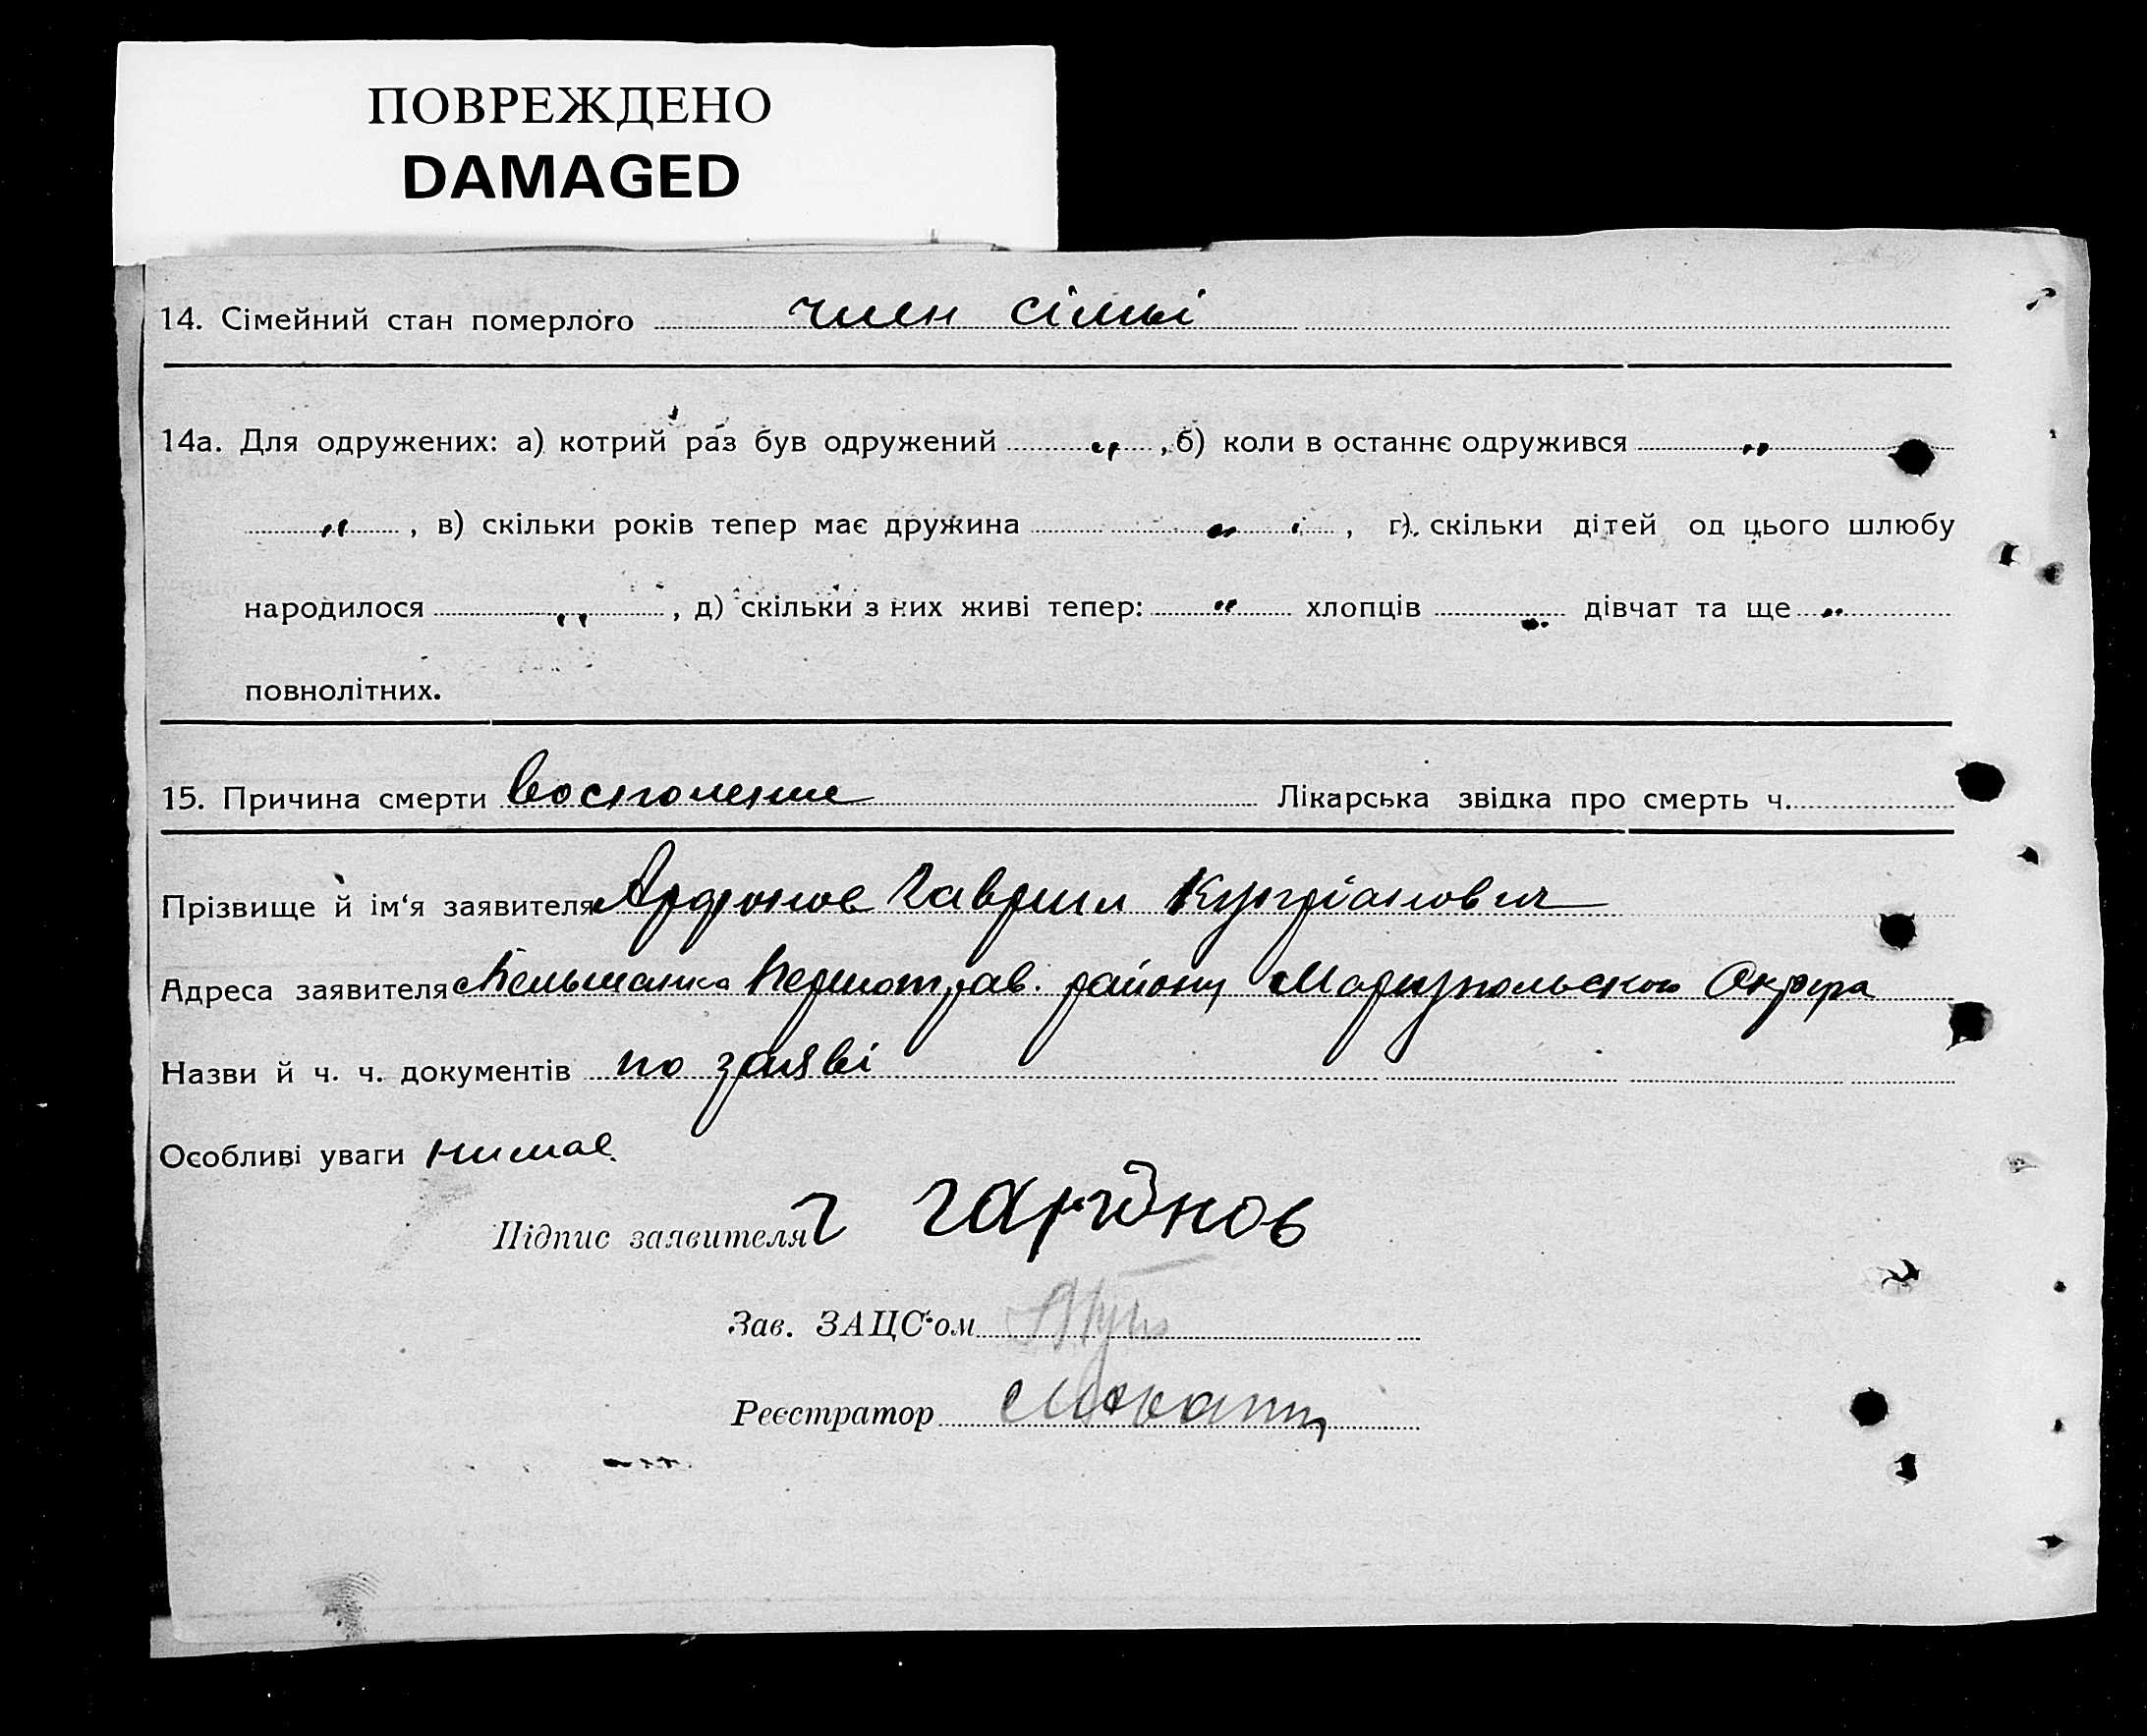 ПОВРЕЖДЕНО
DAMAGED
14. Сімейний стан померлого член сімьі
14а. Для одружених: а) котрий раз був одружений „ , б) коли в останнє одружився „
„ , в) скільки років тепер має дружина „ , г) скільки дітей од цього шлюбу
народилося „ , д) скільки з них живі тепер: „ хлопців „ дівчат та ще „
повнолітних.
15. Причина смерти Восполение Лікарська звідка про смерть ч.
Прізвище й ім‘я заявителя Гаврил
Адреса заявителя району Мариупольского Округа
Назви й ч. ч. документів по заяві
Особливі уваги нимае.
Підпис заявителя г
Зав. ЗАЦС‘ом
Реєстратор